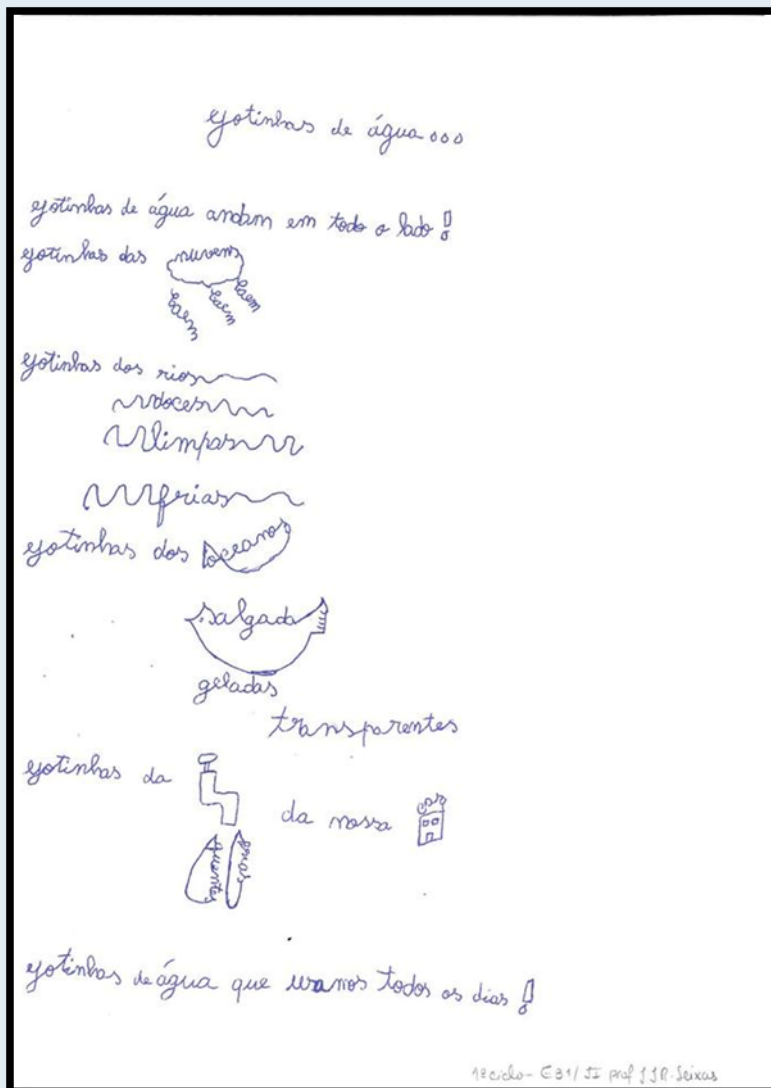 gotinhas de água...
gotinhas de água andam em todo o lado!
gotinhas das nuvens
caem
caem
caem
gotinhas dos rios
doces
limpas
frias
gotinhas dos oceanos
salgadas
geladas
transparentes
gotinhas da
da nossa casa
quentes
frias
gotinhas de água que usamos todos os dias!
1º ciclo - EB1/JI prof J.J.R. Seixas